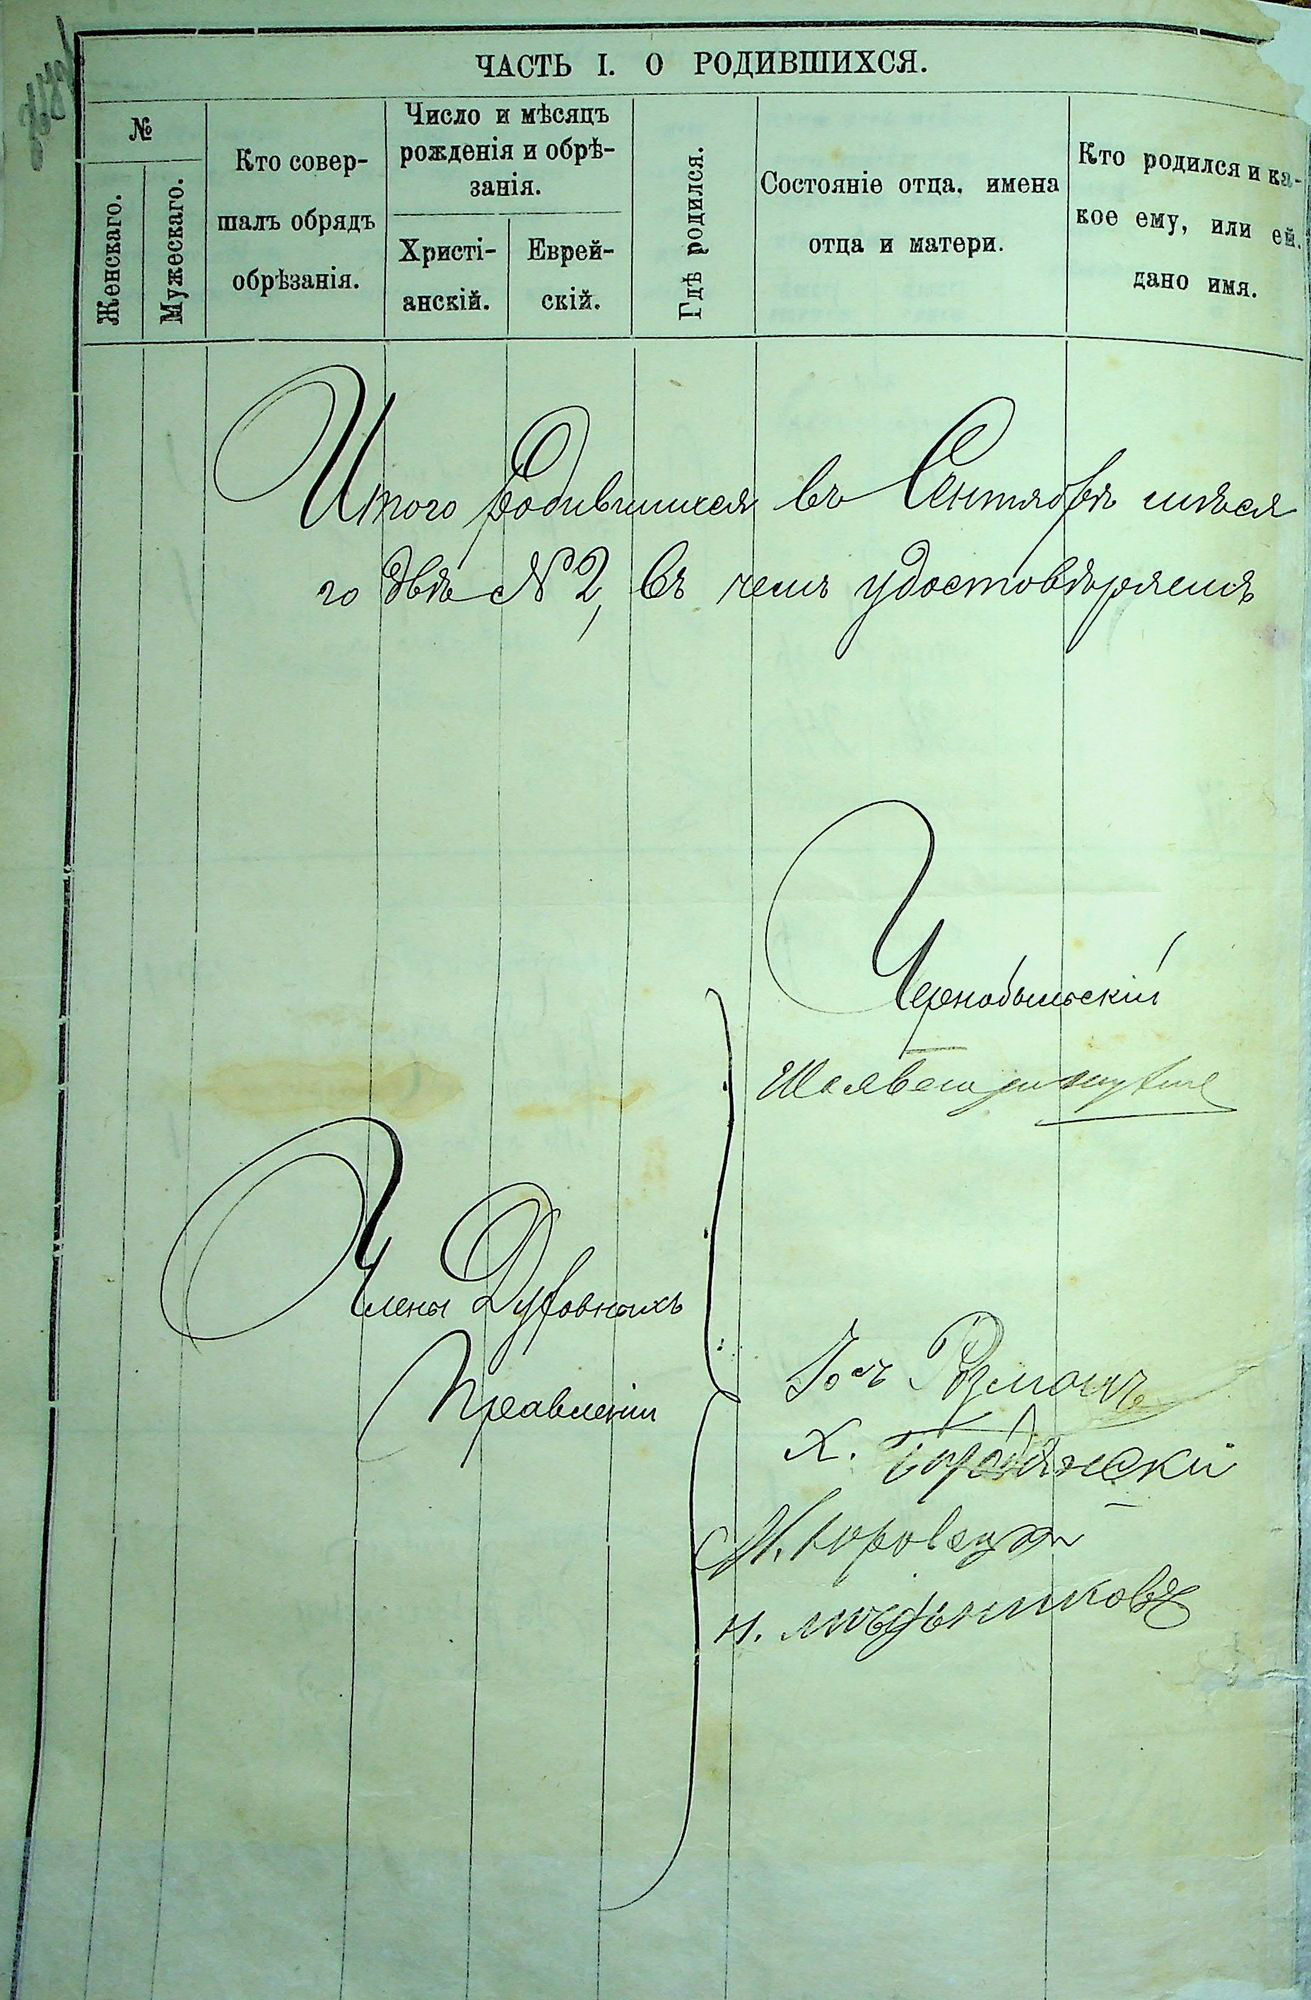 ЧАСТЬ I. О РОДИВШИХСЯ.
№
Женскаго.
Мужескаго.
Кто совер-
шалъ обрядъ
обрѣзанія.
Число и мѣсяцъ
рожденія и обрѣ-
занія.
Христі-
анскій.
Еврей-
скій.
Гдѣ родился.
Состояніе отца, имена
отца и матери.
Кто родился и ка-
кое ему, или ей,
дано имя.
Итого родившихся въ Сентябрѣ мѣся
го двѣ № 2, въ чемъ удостовѣряемъ
Чернобыльскій
Члены Духовныхъ
Правленій
Розманъ
Х. Бородянскій
М.
Н. Мѣдниковъ